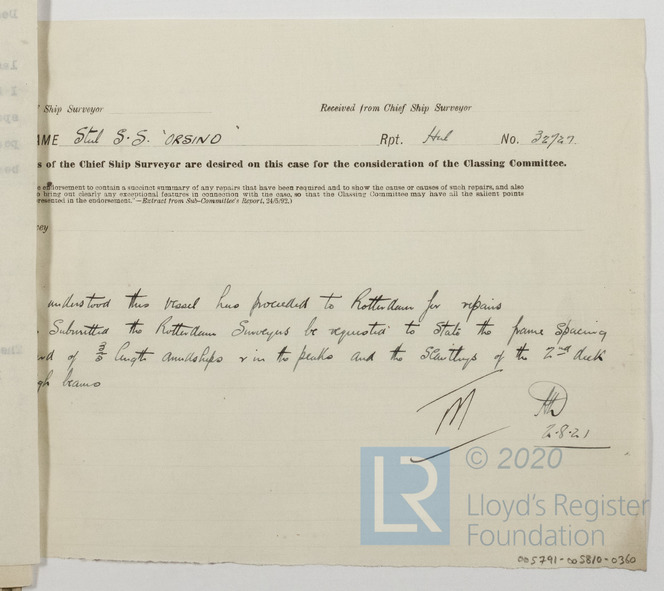 Ship Surveyor Received from Chief Ship Surveyor
AME Stul S.S. 'ORSINO' Rpt. Hul No. 32727
s of the Chief Ship Surveyor are desired on this case for the consideration of the Classing Committee.
e endorsement to contain a succinct summary of any repairs that have been required and to show the cause or causes of such repairs, and also
o bring out clearly any exceptional features in connection with the case, so that the Classing Committee may have all the salient points
resented in the endorsement."—Extract from Sub-Committee's Report, 24/5/92.)
ey
understood this vessel has proceeded to Rotterdam for repairs
Submitted the Rotterdam Surveyors be requested to state the frame spacing
nd of 3/5 length amidships & in the peaks and the scantlings of the 2nd deck
gh beams
2.8.21
LR © 2020
Lloyd's Register
Foundation
005791-005810-0360